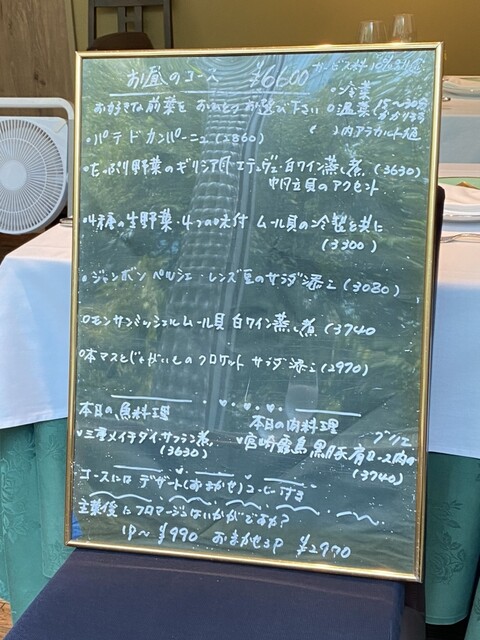 お昼のコース ¥6600 サービス料10%別途
・冷菜
お好きな前菜を おひとつお選び下さい ○温菜 (15〜30分
かかります)
( )内アラカルト価
・パテ ド カンパーニュ (2860)
・たっぷり野菜のギリシア風 エテュヴェ・白ワイン蒸し煮 (3630)
中円立貝のアクセント
・4種の生野菜・4つの味付 ムール貝の冷製と共に
(3300)
・ジャンボン ペルシエ・レンズ豆のサラダ添え (3080)
○モンサンミッシェル ムール貝 白ワイン蒸し煮 (3740
○本マスとじゃがいものクロケット サラダ添え (2970)
本日の魚料理
本日の肉料理
♥三重メイチダイ・サフラン煮
(3630)
グリエ
♥宮崎霧島黒豚肩ロース肉の
(3740)
コースには デザート(おまかせ)コーヒー付き
主菜後にフロマージュはいかがですか?
1P〜 ¥990 おまかせ3P ¥2970